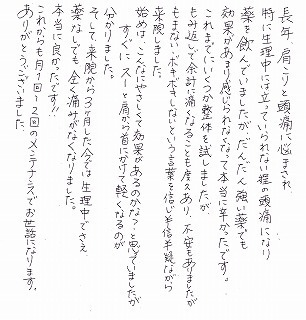 長年、肩こりと頭痛に悩まされ
特に生理中には立っていられない程の頭痛になり
薬を飲んでいましたが、だんだん強い薬でも
効果があまり感じられなくなって本当に辛かったです。
これまでにいくつか整体を試しましたが
もみ返しで余計に痛くなることも度々あり、不安もありましたが
もまない、ボキボキしないという言葉を信じ半信半疑ながら
来院しました。
始めは、こんなにやさしくて効果があるのかな?と思っていましたが
すぐに、スーッと肩から首にかけて軽くなるのが
分かりました。
そして、来院から3ヶ月した今では生理中でさえ
薬なしでも全く痛みがなくなりました。
本当に良かったです!!
これからも月1回~2回のメンテナンスでお世話になります。
ありがとうございました。